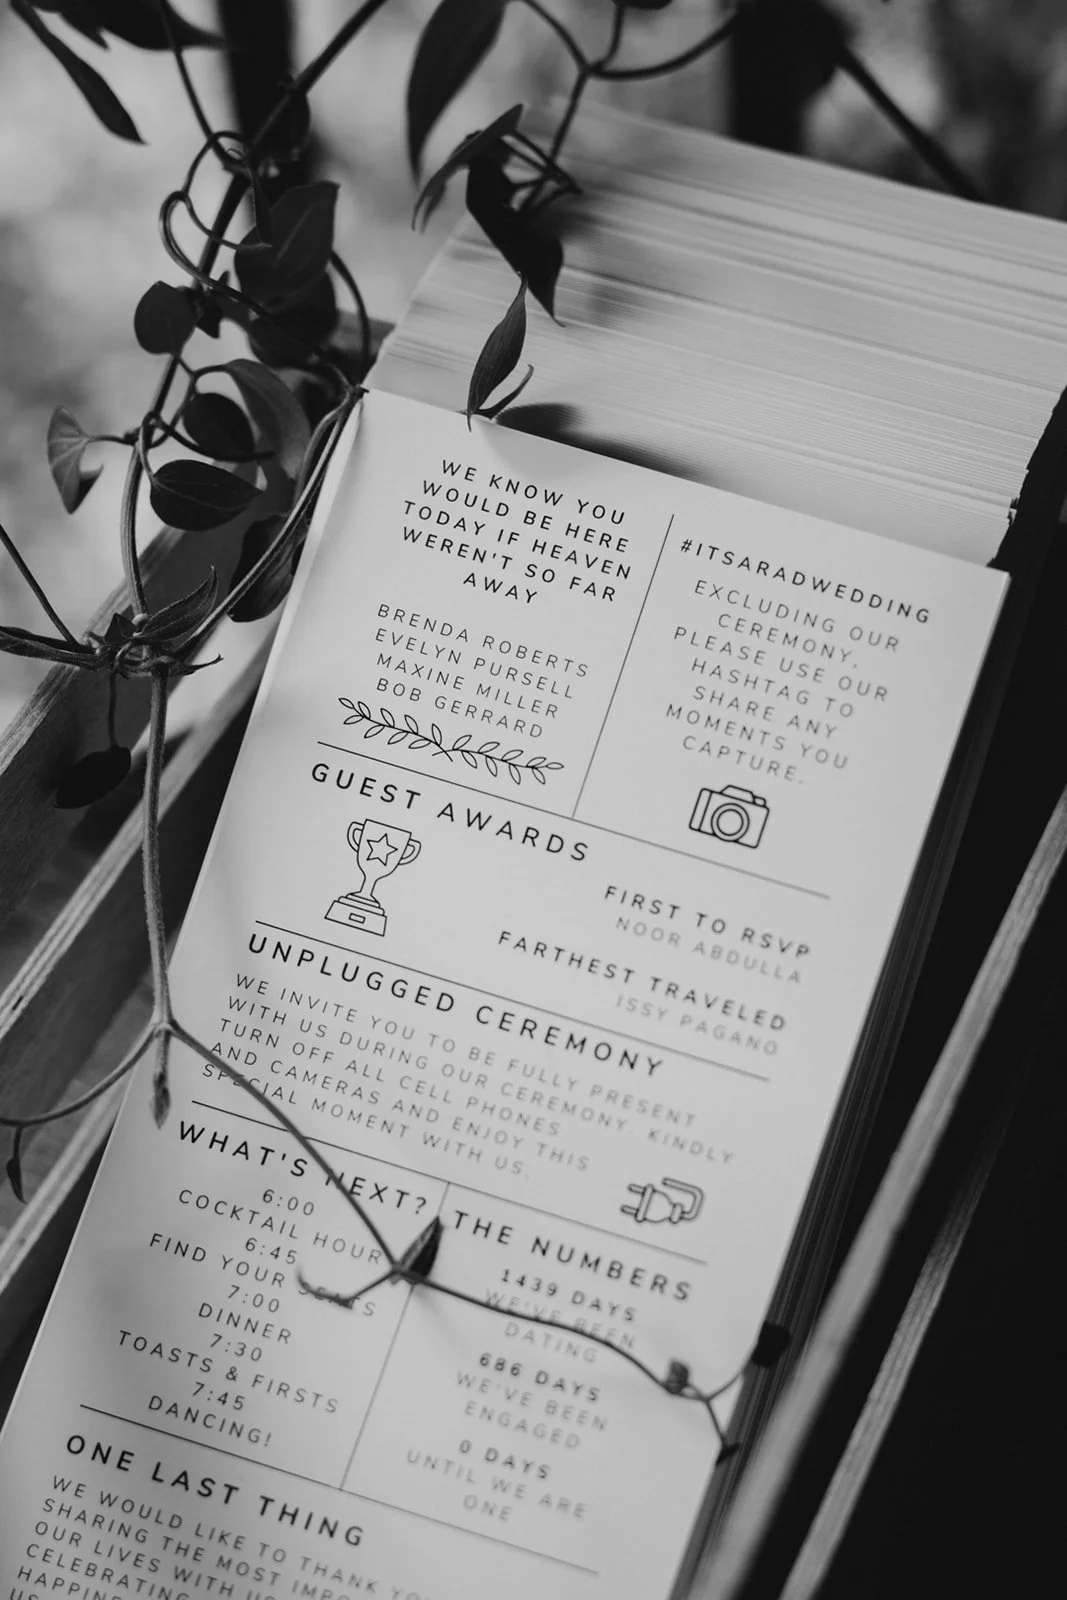 WE KNOW YOU
WOULD BE HERE
TODAY IF HEAVEN
WEREN'T SO FAR
AWAY
BRENDA ROBERTS
EVELYN PURSELL
MAXINE MILLER
BOB GERRARD
#ITSARADWEDDING
EXCLUDING OUR
CEREMONY,
PLEASE USE OUR
HASHTAG TO
SHARE ANY
MOMENTS YOU
CAPTURE.
GUEST AWARDS
FIRST TO RSVP
NOOR ABDULLA
FARTHEST TRAVELED
ISSY PAGANO
UNPLUGGED CEREMONY
WE INVITE YOU TO BE FULLY PRESENT
WITH US DURING OUR CEREMONY. KINDLY
TURN OFF ALL CELL PHONES
AND CAMERAS AND ENJOY THIS
SPECIAL MOMENT WITH US.
WHAT'S NEXT?
6:00
COCKTAIL HOUR
6:45
FIND YOUR SEATS
7:00
DINNER
7:30
TOASTS & FIRSTS
7:45
DANCING!
THE NUMBERS
1439 DAYS
WE'VE BEEN
DATING
686 DAYS
WE'VE BEEN
ENGAGED
0 DAYS
UNTIL WE ARE
ONE
ONE LAST THING
WE WOULD LIKE TO THANK
SHARING THE MOST
OUR LIVES WITH
CELEBRATING